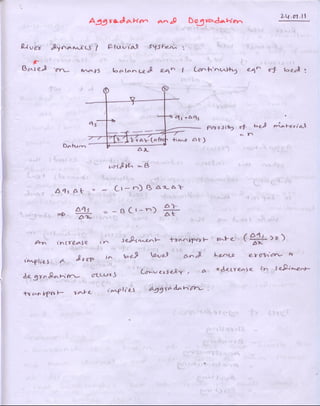 24.01.11
Aggradation and Degradation
River dynamics / Fluvial system :
Based on mass balanced eqn / Continuity eqn of bed :
① ②
qs qs + Δqs
Porosity of bed material = n
z z + Δz (after time Δt)
Datum
Δx
width = B
Δqs Δt = - (1-n) B Δx Δt
⇒ Δqs/Δx = - B (1-n) Δz/Δt
An increase in sediment transport rate (Δqs/Δx > 0)
implies a drop in bed level and hence erosion or
degradation occurs Conversely, a decrease in sediment
transport rate implies aggradation.